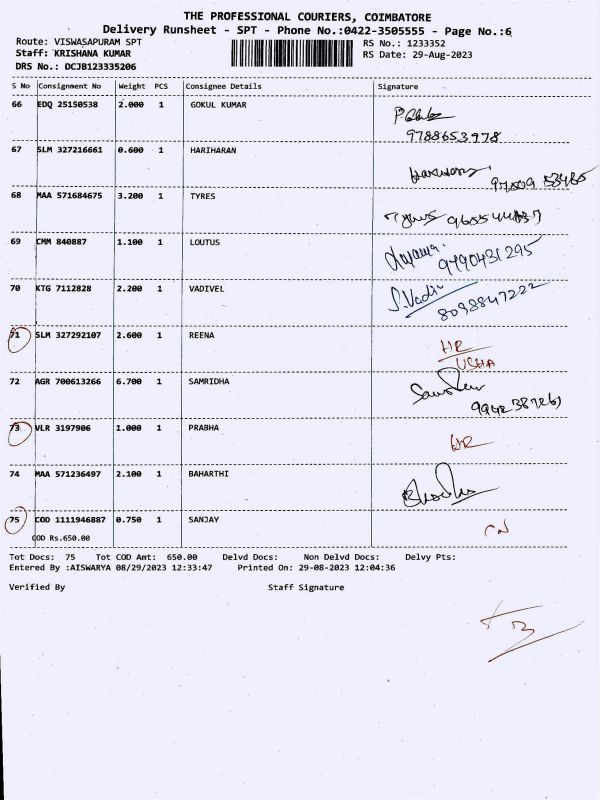 THE PROFESSIONAL COURIERS, COIMBATORE
Delivery Runsheet - SPT - Phone No.:0422-3505555 - Page No.:6
Route: VISWASAPURAM SPT RS No.: 1233352
Staff: KRISHANA KUMAR RS Date: 29-Aug-2023
DRS No.: DCJB123335206
S No Consignment No Weight PCS Consignee Details Signature
66 EDQ 25150538 2.000 1 GOKUL KUMAR
9788653978
67 SLM 327216661 0.600 1 HARIHARAN
68 MAA 571684675 3.200 1 TYRES
69 CMM 840887 1.100 1 LOUTUS
9790431295
70 KTG 7112828 2.200 1 VADIVEL
S.Vadi
8098847222
71 SLM 327292107 2.600 1 REENA
HR
USHA
72 AGR 700613266 6.700 1 SAMRIDHA
73 VLR 3197906 1.000 1 PRABHA
HR
74 MAA 571236497 2.100 1 BAHARTHI
75 COD 1111946887 0.750 1 SANJAY
COD Rs.650.00
Tot Docs: 75 Tot COD Amt: 650.00 Delvd Docs: Non Delvd Docs: Delvy Pts:
Entered By :AISWARYA 08/29/2023 12:33:47 Printed On: 29-08-2023 12:04:36
Verified By Staff Signature